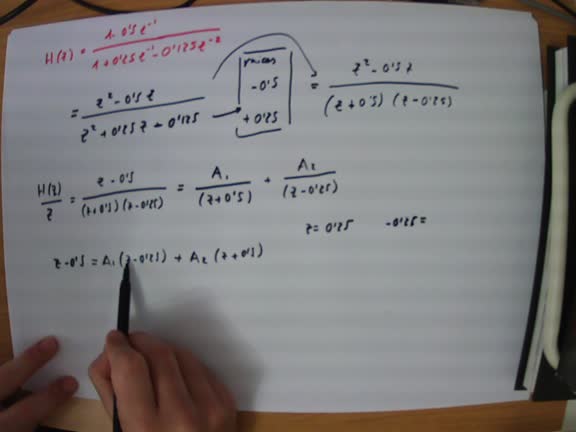 H(z) = 1 - 0'5z⁻¹ / 1 + 0'25z⁻¹ - 0'125z⁻²
= z² - 0'5z / z² + 0'25z - 0'125
raices
-0'5
+0'25
= z² - 0'5z / (z+0'5) (z-0'25)
H(z)/z = z - 0'5 / (z+0'5)(z-0'25) = A₁ / (z+0'5) + A₂ / (z-0'25)
z = 0'25 -0'25 =
z-0'5 = A₁(z-0'25) + A₂(z+0'5)